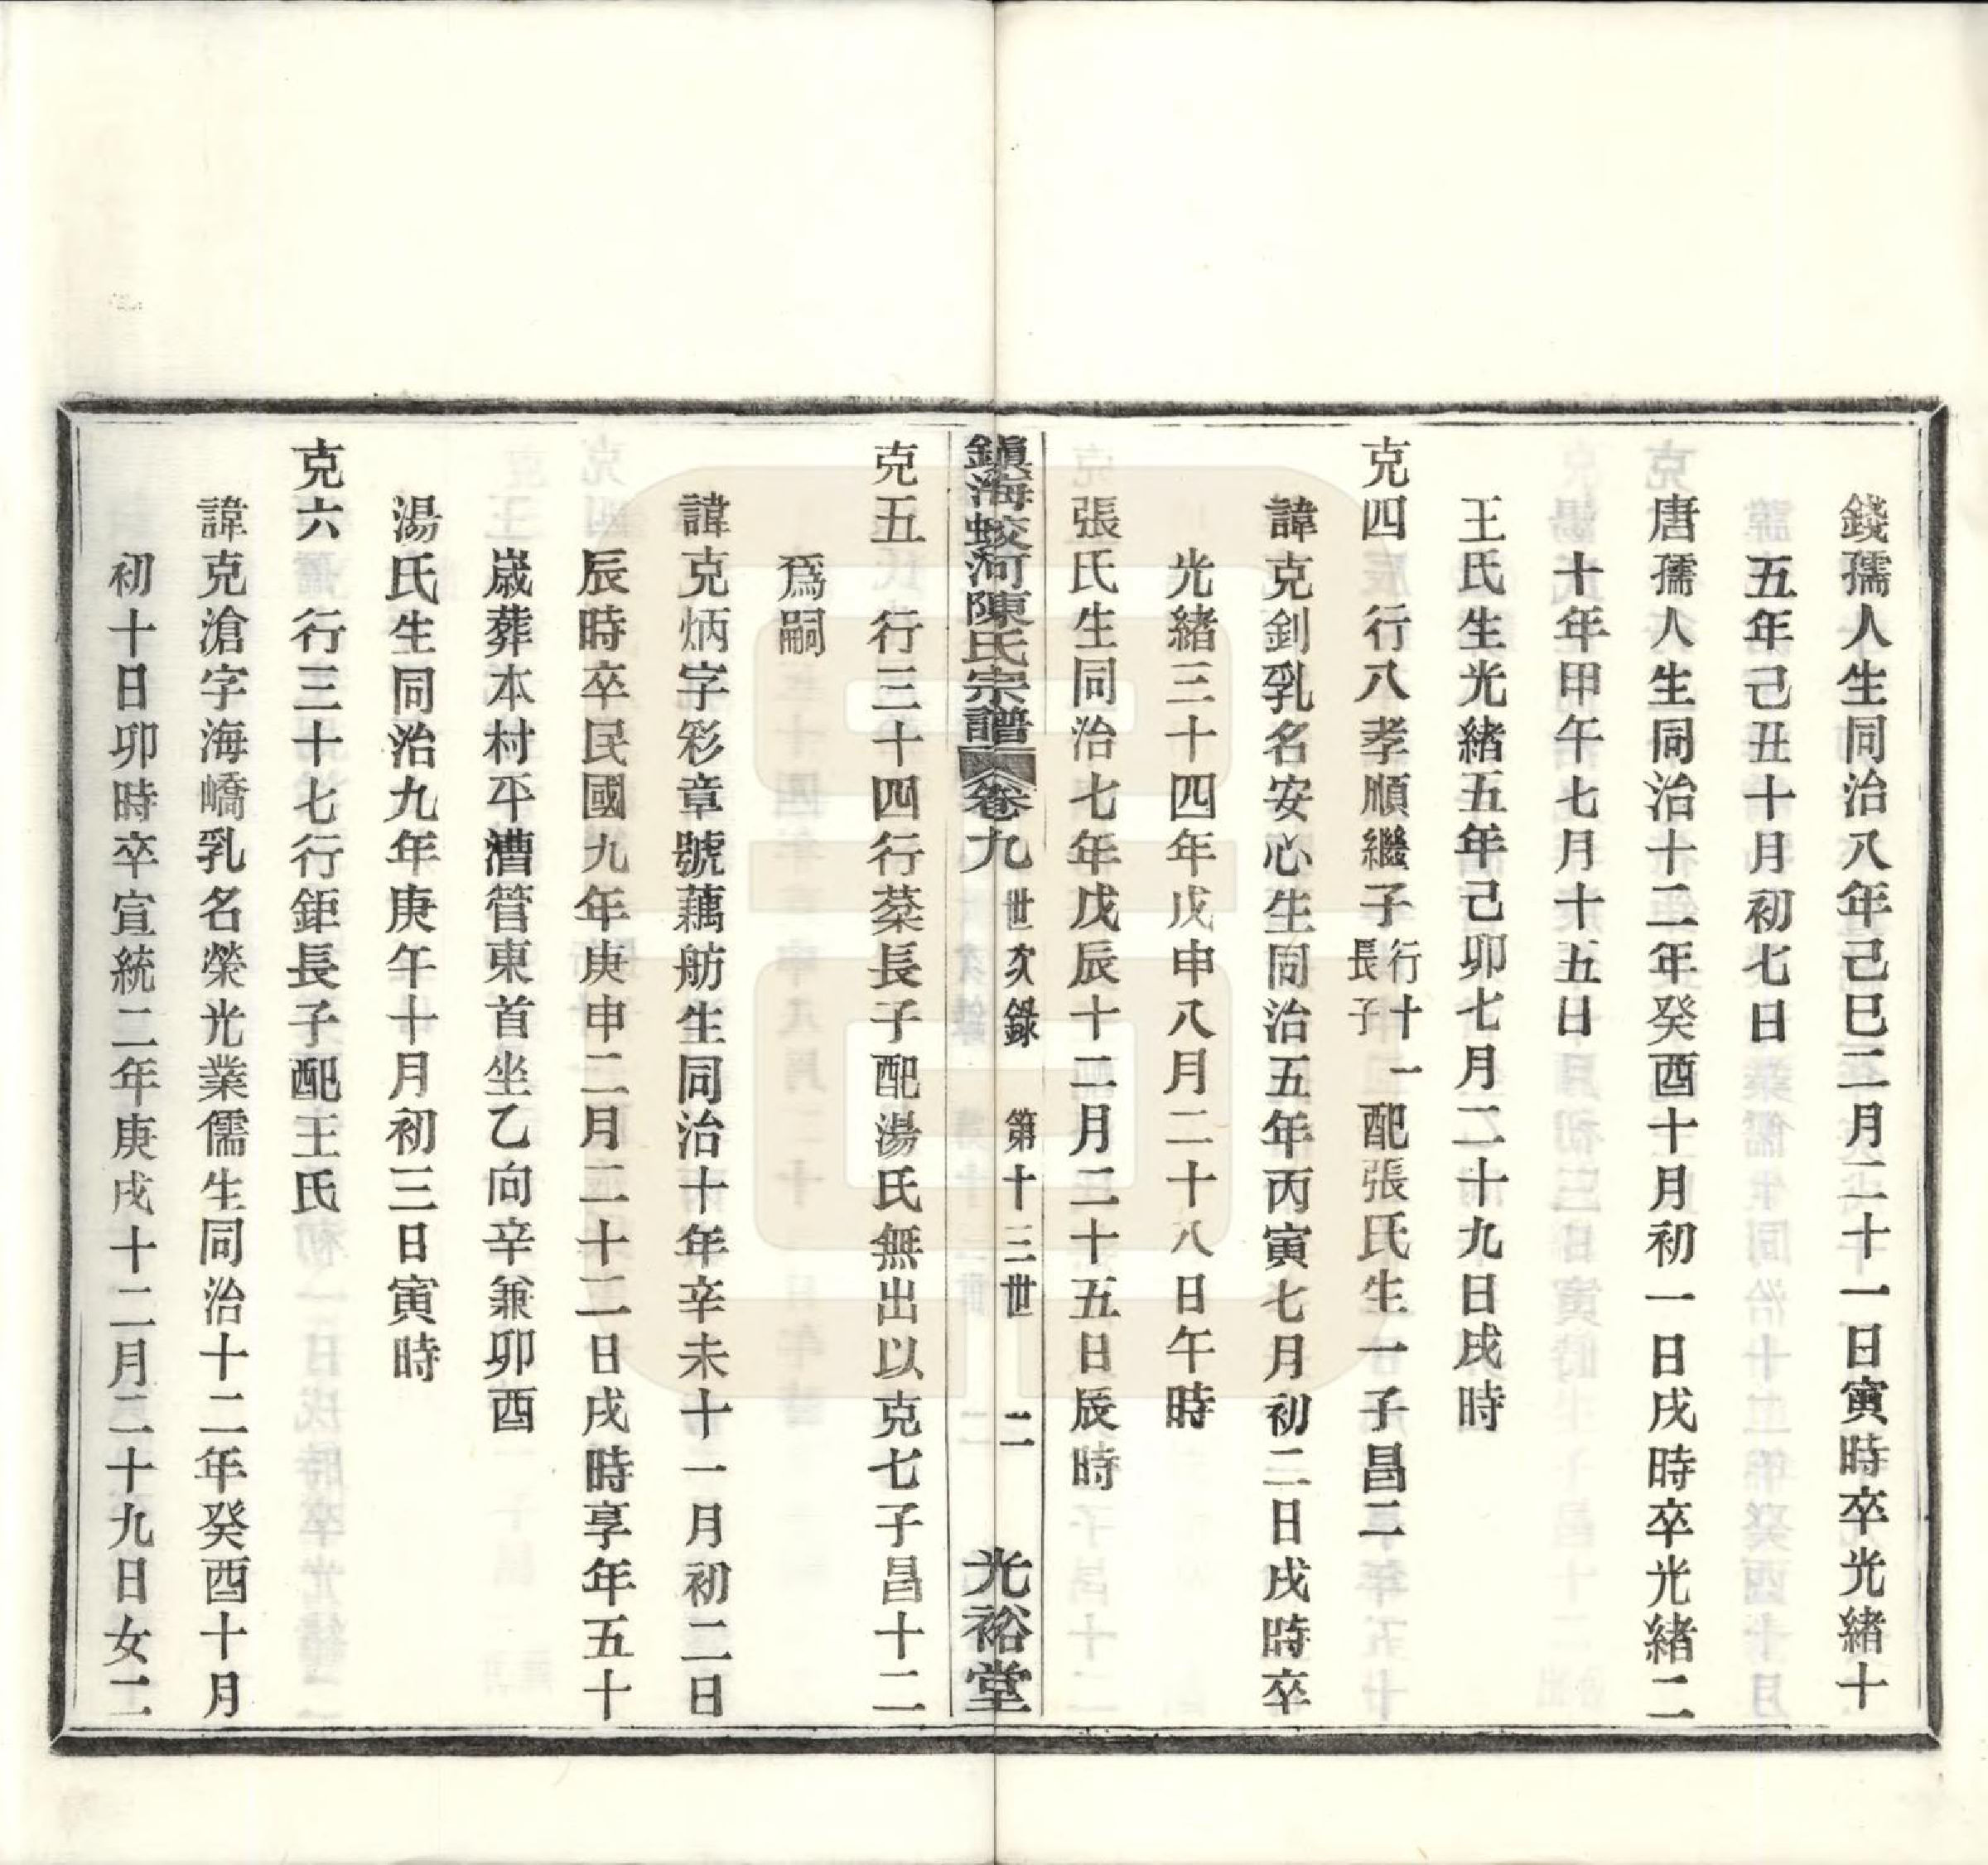 錢孺人生同治八年己巳二月二十一日寅時卒光緒十
五年己丑十月初七日
唐孺人生同治十二年癸酉十月初一日戌時卒光緒二
十年甲午七月十五日
王氏生光緒五年己卯七月二十九日戌時
克四　行八孝順繼子行十一長子配張氏生一子昌二
諱克釗乳名安心生同治五年丙寅七月初二日戌時卒
光緒三十四年戊申八月二十八日午時
張氏生同治七年戊辰十二月二十五日辰時
鎭海蛟河陳氏宗譜　卷九　世次錄　第十三世　二　光裕堂
克五　行三十四行棻長子配湯氏無出以克七子昌十二
爲嗣
諱克炳字彩章號藕舫生同治十年辛未十一月初二日
辰時卒民國九年庚申二月二十二日戌時享年五十
歲葬本村平漕管東首坐乙向辛兼卯酉
湯氏生同治九年庚午十月初三日寅時
克六　行三十七行鉅長子配王氏
諱克滄字海嶠乳名榮光業儒生同治十二年癸酉十月
初十日卯時卒宣統二年庚戌十二月二十九日女二